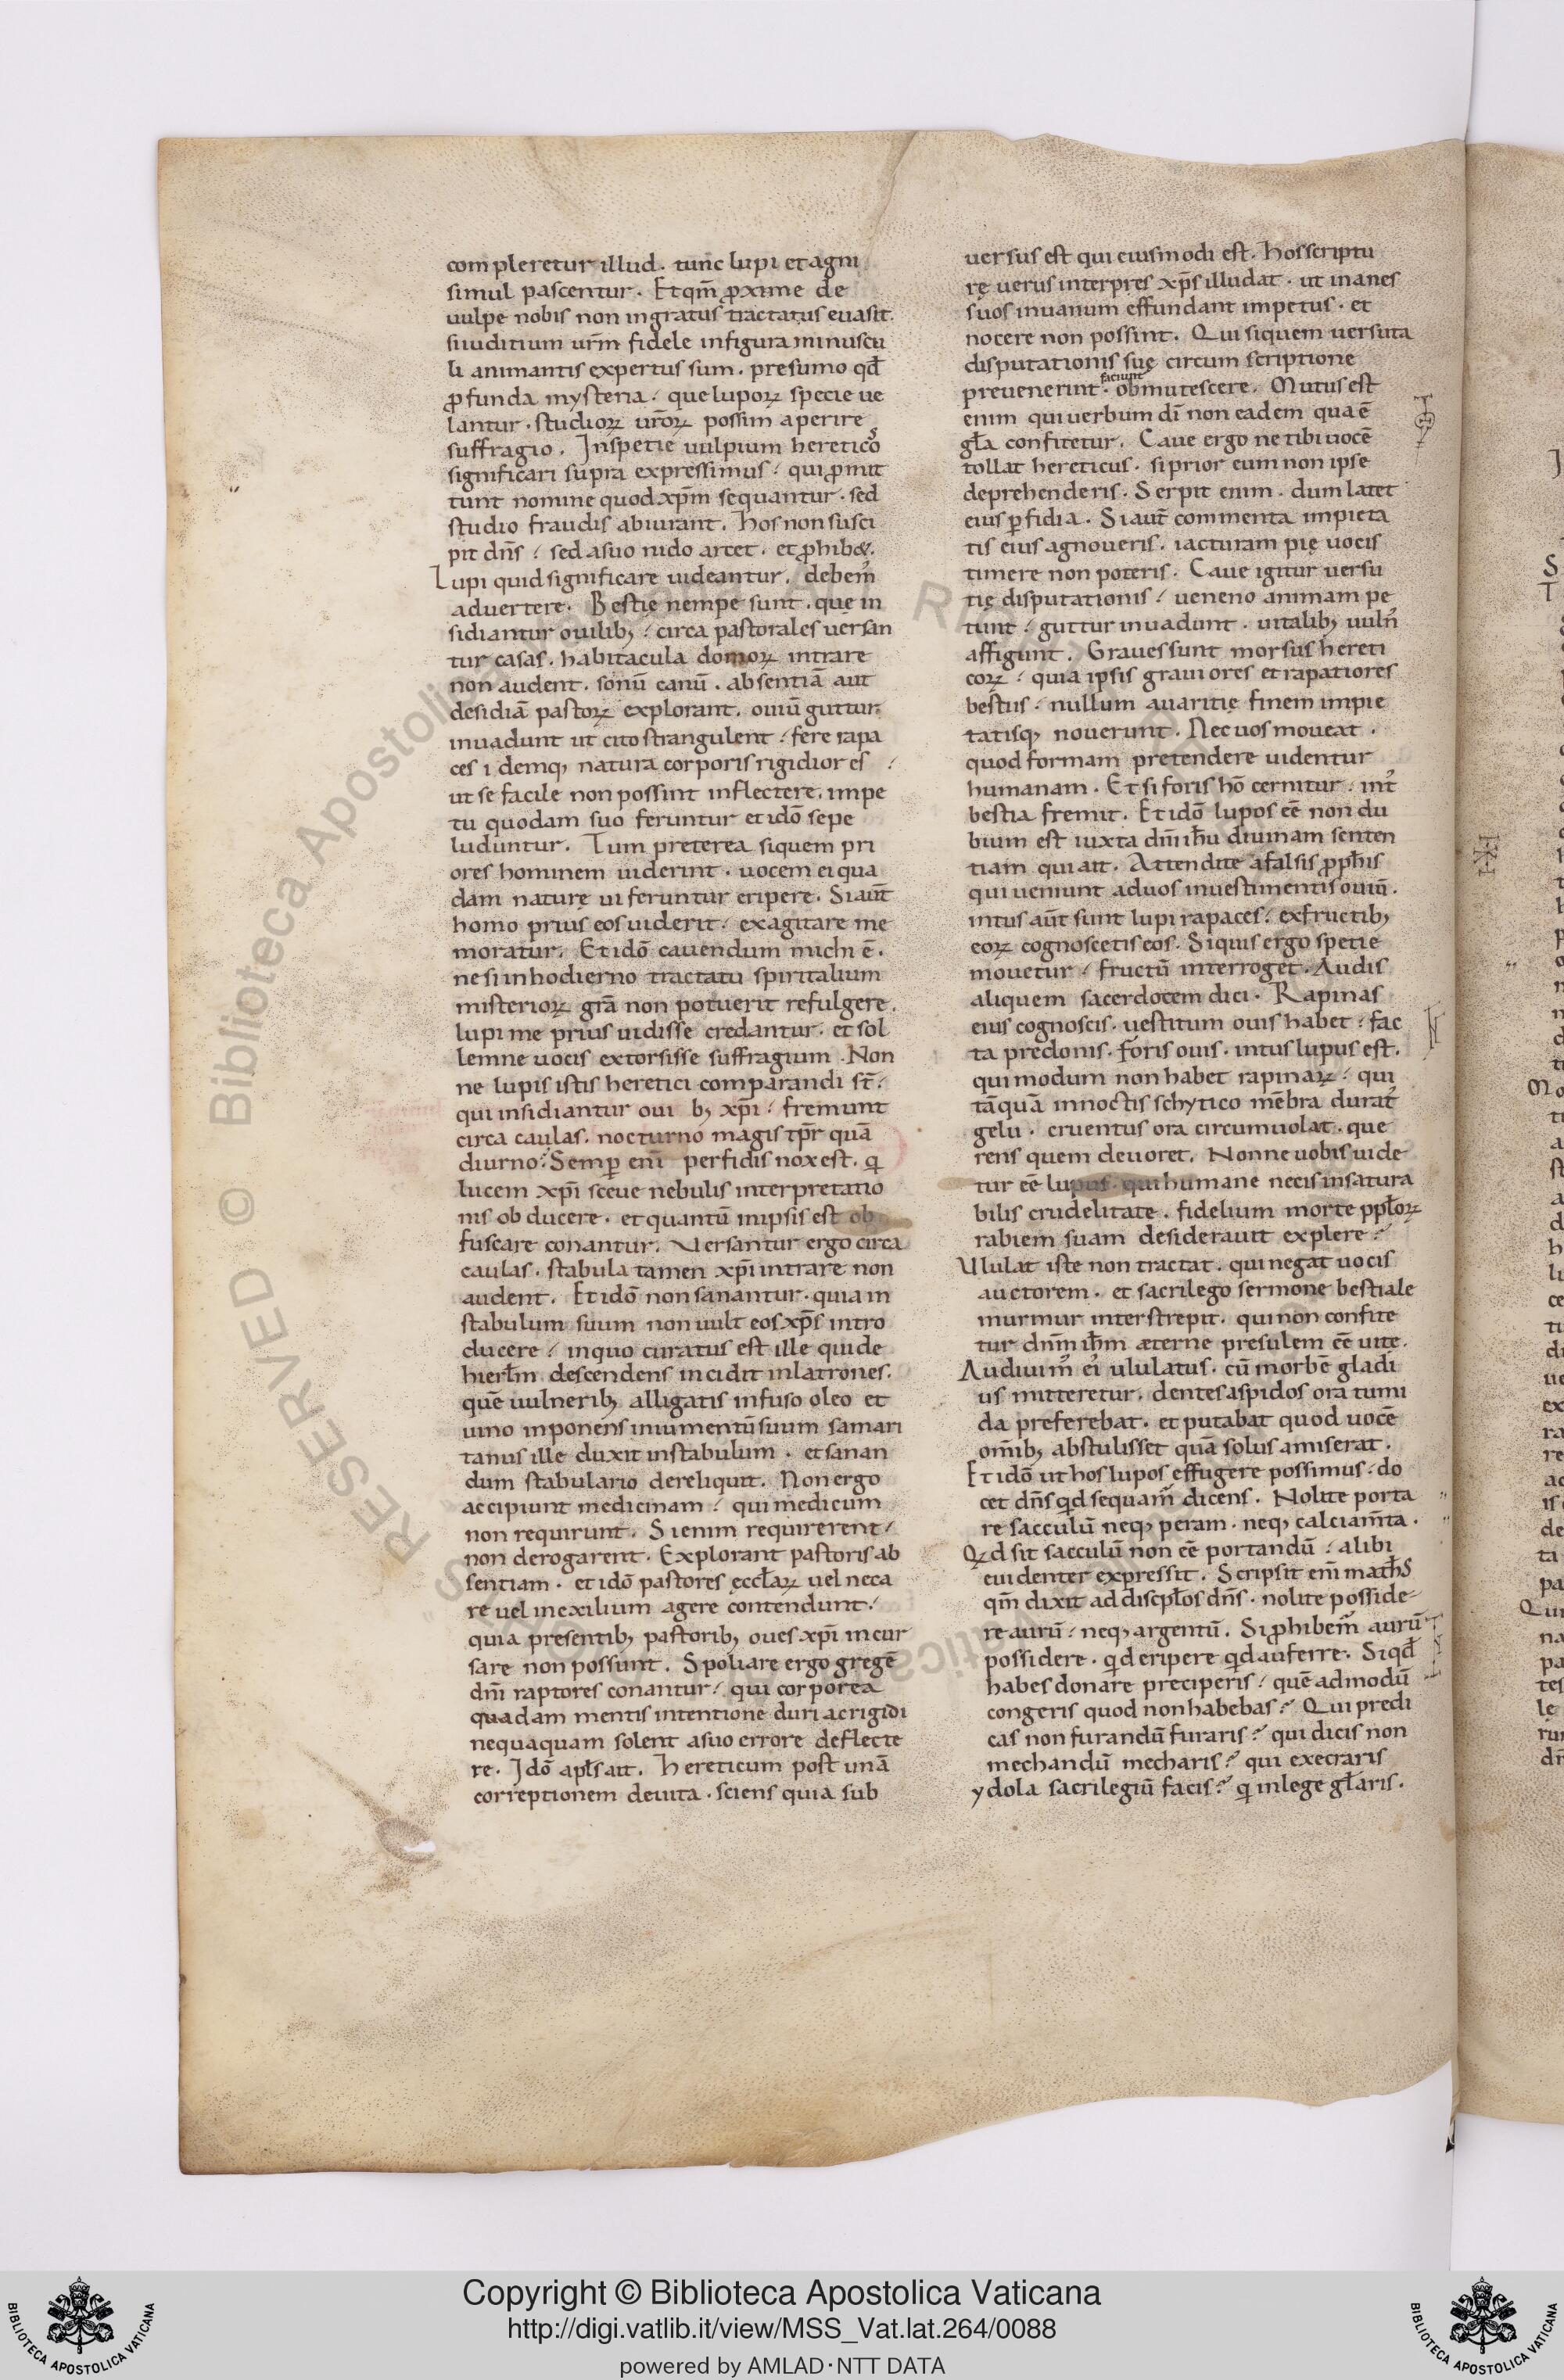 compleretur illud. tunc lupi et agni
simul pascentur. Et qm̄ ꝓxime de
uulpe nobis non ingratus tractatus euasit.
si iuditium ur̄m fidele in figura minuscu
li animantis expertus sum. presumo qđ
ꝓfunda mysteria. que lupoꝝ specie ue
lantur. studioꝝ ur̄oꝝ possim aperire
suffragio. Inspetie uulpium hereticos
significari supra expressimus. qui ꝓmit
tunt nomine quod xp̄m sequantur. sed
studio fraudis abiurant. Hos non susci
pit dn̄s. sed a suo nido arcet. et ꝓhib&.
Lupi quid significare uideantur. debem᷒
aduertere. Bestię nempe sunt. quę in
sidiantur ouilibꝫ. circa pastorales uersan
tur casas. habitacula domoꝝ intrare
non audent. sonū canū. absentiā aut
desidiā pastoꝝ explorant. ouiū guttur
inuadunt ut cito strangulent. fere rapa
ces idemqꝫ natura corporis rigidiores
ut se facile non possint inflectere. impe
tu quodam suo feruntur et idō sepe
luduntur. Tum preterea siquem pri
ores hominem uiderint. uocem ei qua
dam naturę ui feruntur eripere. Si aūt
homo prius eos uiderit. exagitare me
moratur. Et idō cauendum michi ē.
ne si in hodierno tractatu spiritalium
misterioꝝ grā non potuerit refulgere.
lupi me prius uidisse credantur. et sol
lemne uocis extorsisse suffragium. Non
ne lupis istis heretici comparandi st̄.
qui insidiantur oui bꝫ xp̄i. fremunt
circa caulas. nocturno magis tp̄r quā
diurno. Semꝑ eni perfidis nox est. q̄
lucem xp̄i sceue nebulis interpretatio
nis obducere. et quantū in ipsis est ob
fuscare conantur. Versantur ergo circa
caulas. stabula tamen xp̄i intrare non
audent. Et idō non sanantur. quia in
stabulum suum non uult eos xp̄s intro
ducere. in quo curatus est ille qui de
hierłm descendens incidit in latrones.
quē uulneribꝫ alligatis infuso oleo et
uino inponens in iumentū suum samari
tanus ille duxit in stabulum. et sanan
dum stabulario dereliquit. Non ergo
accipiunt medicinam. qui medicum
non requirunt. Si enim requirerent.
non derogarent. Explorant pastoris ab
sentiam. et idō pastores ęccłaꝝ uel neca
re uel in exilium agere contendunt.
quia presentibꝫ pastoribꝫ oues xp̄i incur
sare non possunt. Spoliare ergo gregē
dn̄i raptores conantur. qui corporea
quadam mentis intentione duri ac rigidi
nequaquam solent a suo errore deflecte
re. Idō apłs ait. Hereticum post unā
correptionem deuita. sciens quia sub
uersus est qui eiusmodi est. Hos scriptu
rę uerus interpres xp̄s illudat. ut inanes
suos in uanum effundant impetus. et
nocere non possint. Qui siquem uersuta
disputationis suę circum scriptione
faciunt
preuenerint. obmutescere. Mutus est
enim qui uerbum dī non eadem qua ē
gła confitetur. Caue ergo ne tibi uocē
tollat hereticus. si prior eum non ipse
deprehenderis. Serpit enim. dum latet
eius ꝑfidia. Si aūt commenta impieta
tis eius agnoueris. iacturam pię uocis
timere non poteris. Caue igitur uersu
tię disputationis. ueneno animam pe
tunt. guttur inuadunt. uitalibꝫ uuln᷒
affigunt. Graues sunt morsus hereti
coꝝ. quia ipsis grauiores et rapatiores
bestiis. nullum auaritię finem impie
tatisqꝫ nouerunt. Nec uos moueat.
quod formam pretendere uidentur
humanam. Et si foris hō cernitur. int᷒
bestia fremit. Et idō lupos eē non du
bium est iuxta dn̄i ih̄u diuinam senten
tiam qui ait. Attendite a falsis ꝓph̄is
qui ueniunt ad uos in uestimentis ouiū.
intus aūt sunt lupi rapaces. ex fructibꝫ
eoꝝ cognoscetis eos. Si quis ergo spetie
mouetur. fructū interroget. Audis
aliquem sacerdotem dici. Rapinas
eius cognoscis. uestitum ouis habet. fac
ta predonis. foris ouis. intus lupus est.
qui modum non habet rapinaꝝ. qui
tāquā in noctis schytico mēbra durat᷒
gelu. cruentus ora circumuolat. que
rens quem deuoret. Nonne uobis uide
tur eē lupus. qui humane necis insatura
bilis crudelitate. fidelium morte ppłoꝝ
rabiem suam desiderauit explere?
Ululat iste non tractat. qui negat uocis
auctorem. et sacrilego sermone bestiale
murmur interstrepit. qui non confite
tur dn̄m ih̄m æterne presulem eē uite.
Audiuim᷒ ei᷒ ululatus. cū morbē gladi
us mitteretur. dentes aspidos ora tumi
da preferebat. et putabat quod uocē
om̄ibꝫ abstulisset quā solus amiserat.
Et idō ut hos lupos effugere possimus. do
cet dn̄s qd sequam᷒ dicens. Nolite porta
re sacculū neqꝫ peram. neqꝫ calciam̄ta.
Qd sit sacculū non eē portandū. alibi
euidenter expressit. Scripsit eni math̄s
qm̄ dixit ad discipłos dn̄s. nolite posside
re aurū. neqꝫ argentū. Si ꝓhibem᷒ aurū
possidere. qd eripere qd auferre. Si qđ
habes donare preciperis. quē admodū
congeris quod non habebas? Qui predi
cas non furandū furaris? qui dicis non
mechandū mecharis? qui execraris
ydola sacrilegiū facis? q̄ in lege głaris.
Copyright © Biblioteca Apostolica Vaticana
http://digi.vatlib.it/view/MSS_Vat.lat.264/0088
powered by AMLAD·NTT DATA
BIBLIOTECA APOSTOLICA VATICANA
BIBLIOTECA APOSTOLICA VATICANA